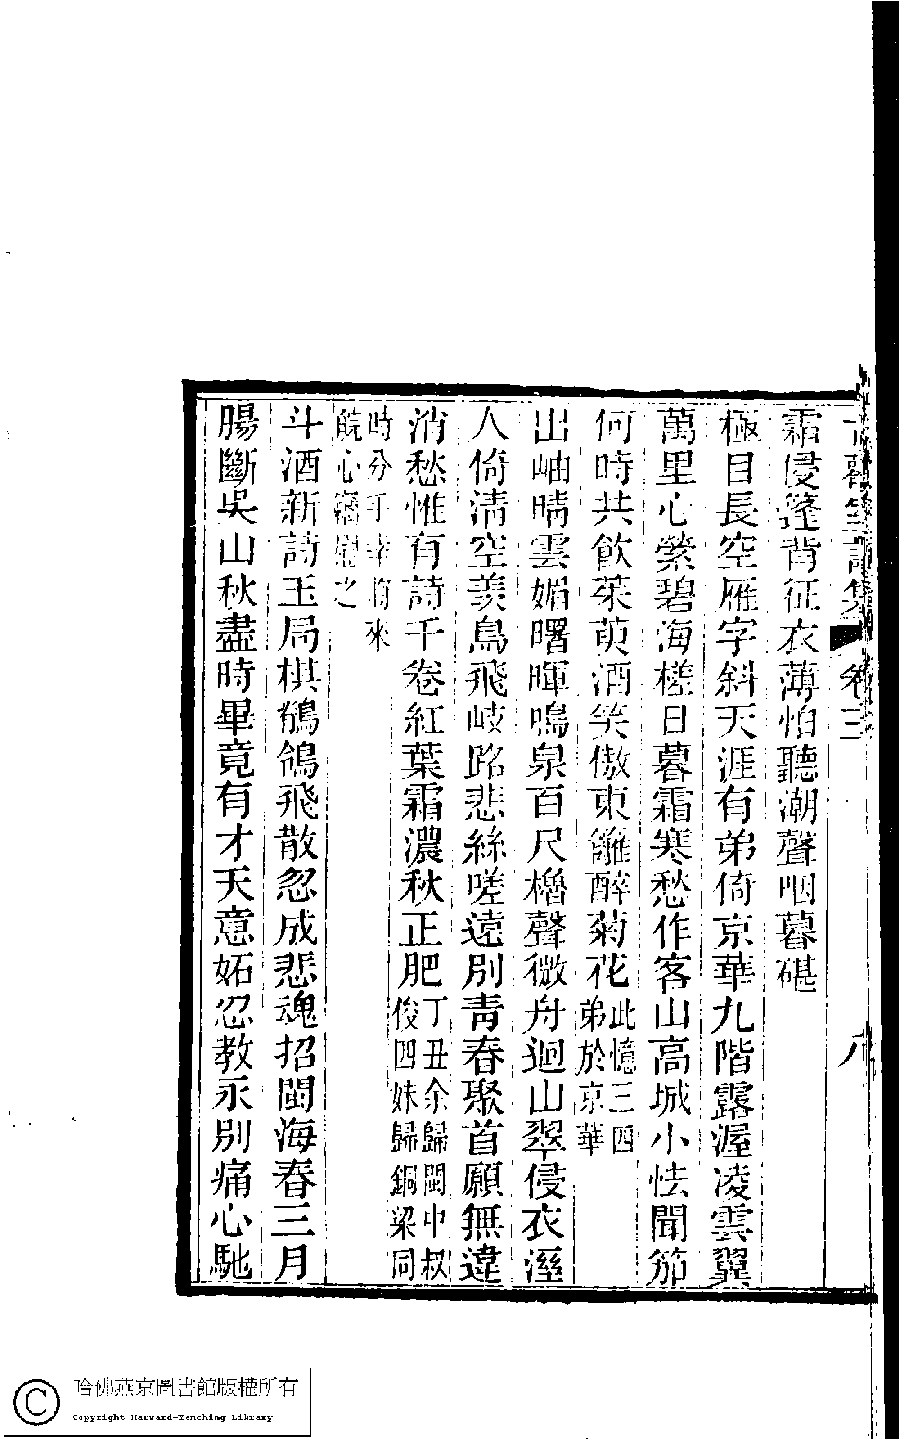 卷三
八
霜侵篷背征衣薄怕聽潮聲咽暮碪
極目長空雁字斜天涯有弟倚京華九階露渥凌雲翼
萬里心縈碧海槎日暮霜寒愁作客山高城小怯聞笳
何時共飲茱萸酒笑傲東籬醉菊花此憶三四弟於京華
出岫晴雲媚曙暉鳴泉百尺櫓聲微舟迴山翠侵衣溼
人倚清空羨鳥飛岐路悲絲嗟遠別青春聚首願無違
消愁惟有詩千卷紅葉霜濃秋正肥丁丑余歸閩中叔俊四妹歸銅梁同
時分手幸將來皖心竊慰之
斗酒新詩玉局棋鶺鴒飛散忽成悲魂招閩海春三月
腸斷吳山秋盡時畢竟有才天意妬忍教永別痛心馳
哈佛燕京圖書館版權所有
Copyright Harvard-Yenching Library